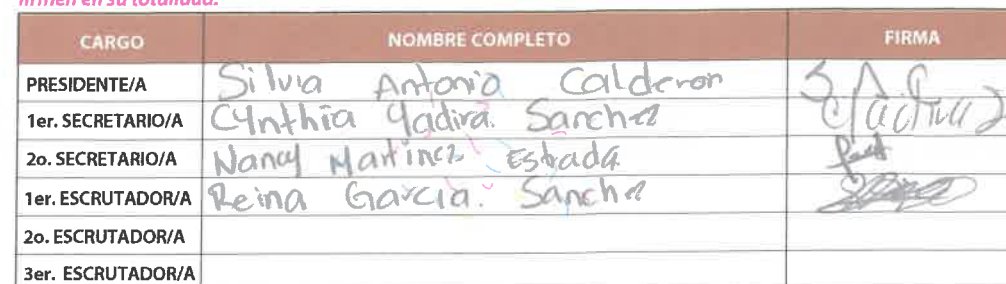 firmen en su totalidad.
CARGO NOMBRE COMPLETO FIRMA
PRESIDENTE/A Silvia Antonio Calderon S A C
1er. SECRETARIO/A Cynthia Yadira Sanchez
2o. SECRETARIO/A Nancy Martinez Estrada
1er. ESCRUTADOR/A Reina Garcia Sanchez
2o. ESCRUTADOR/A
3er. ESCRUTADOR/A